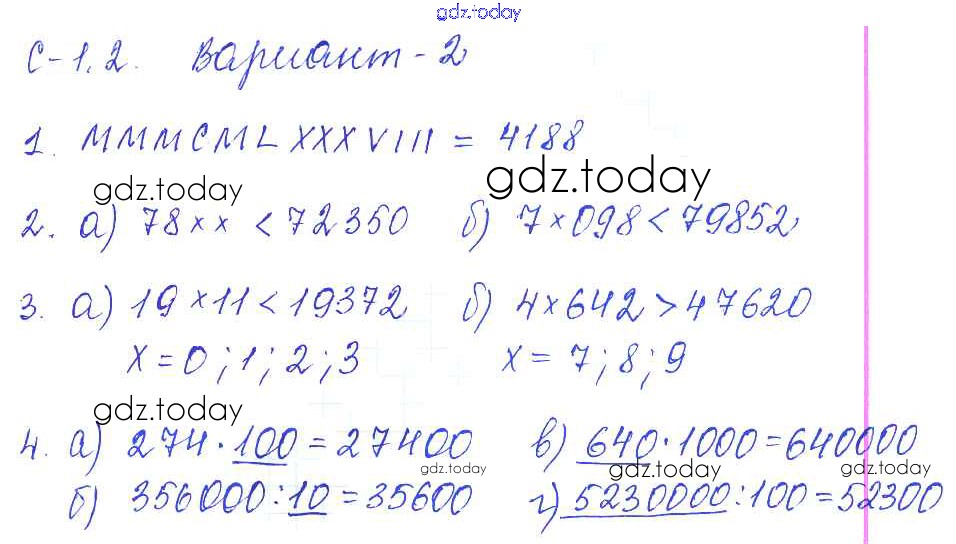 gdz.today
С-1.2. Вариант-2
1. MMMCMLXXXVIII = 4188
gdz.today gdz.today
2. а) 78×× < 72350 б) 7×098 < 79852
3. а) 19×11 < 19372 б) 4×642 > 47620
x = 0; 1; 2; 3 x = 7; 8; 9
gdz.today
4. а) 274·100 = 27400 в) 640·1000 = 640000
gdz.today gdz.today
б) 356000:10 = 35600 г) 5230000:100 = 52300